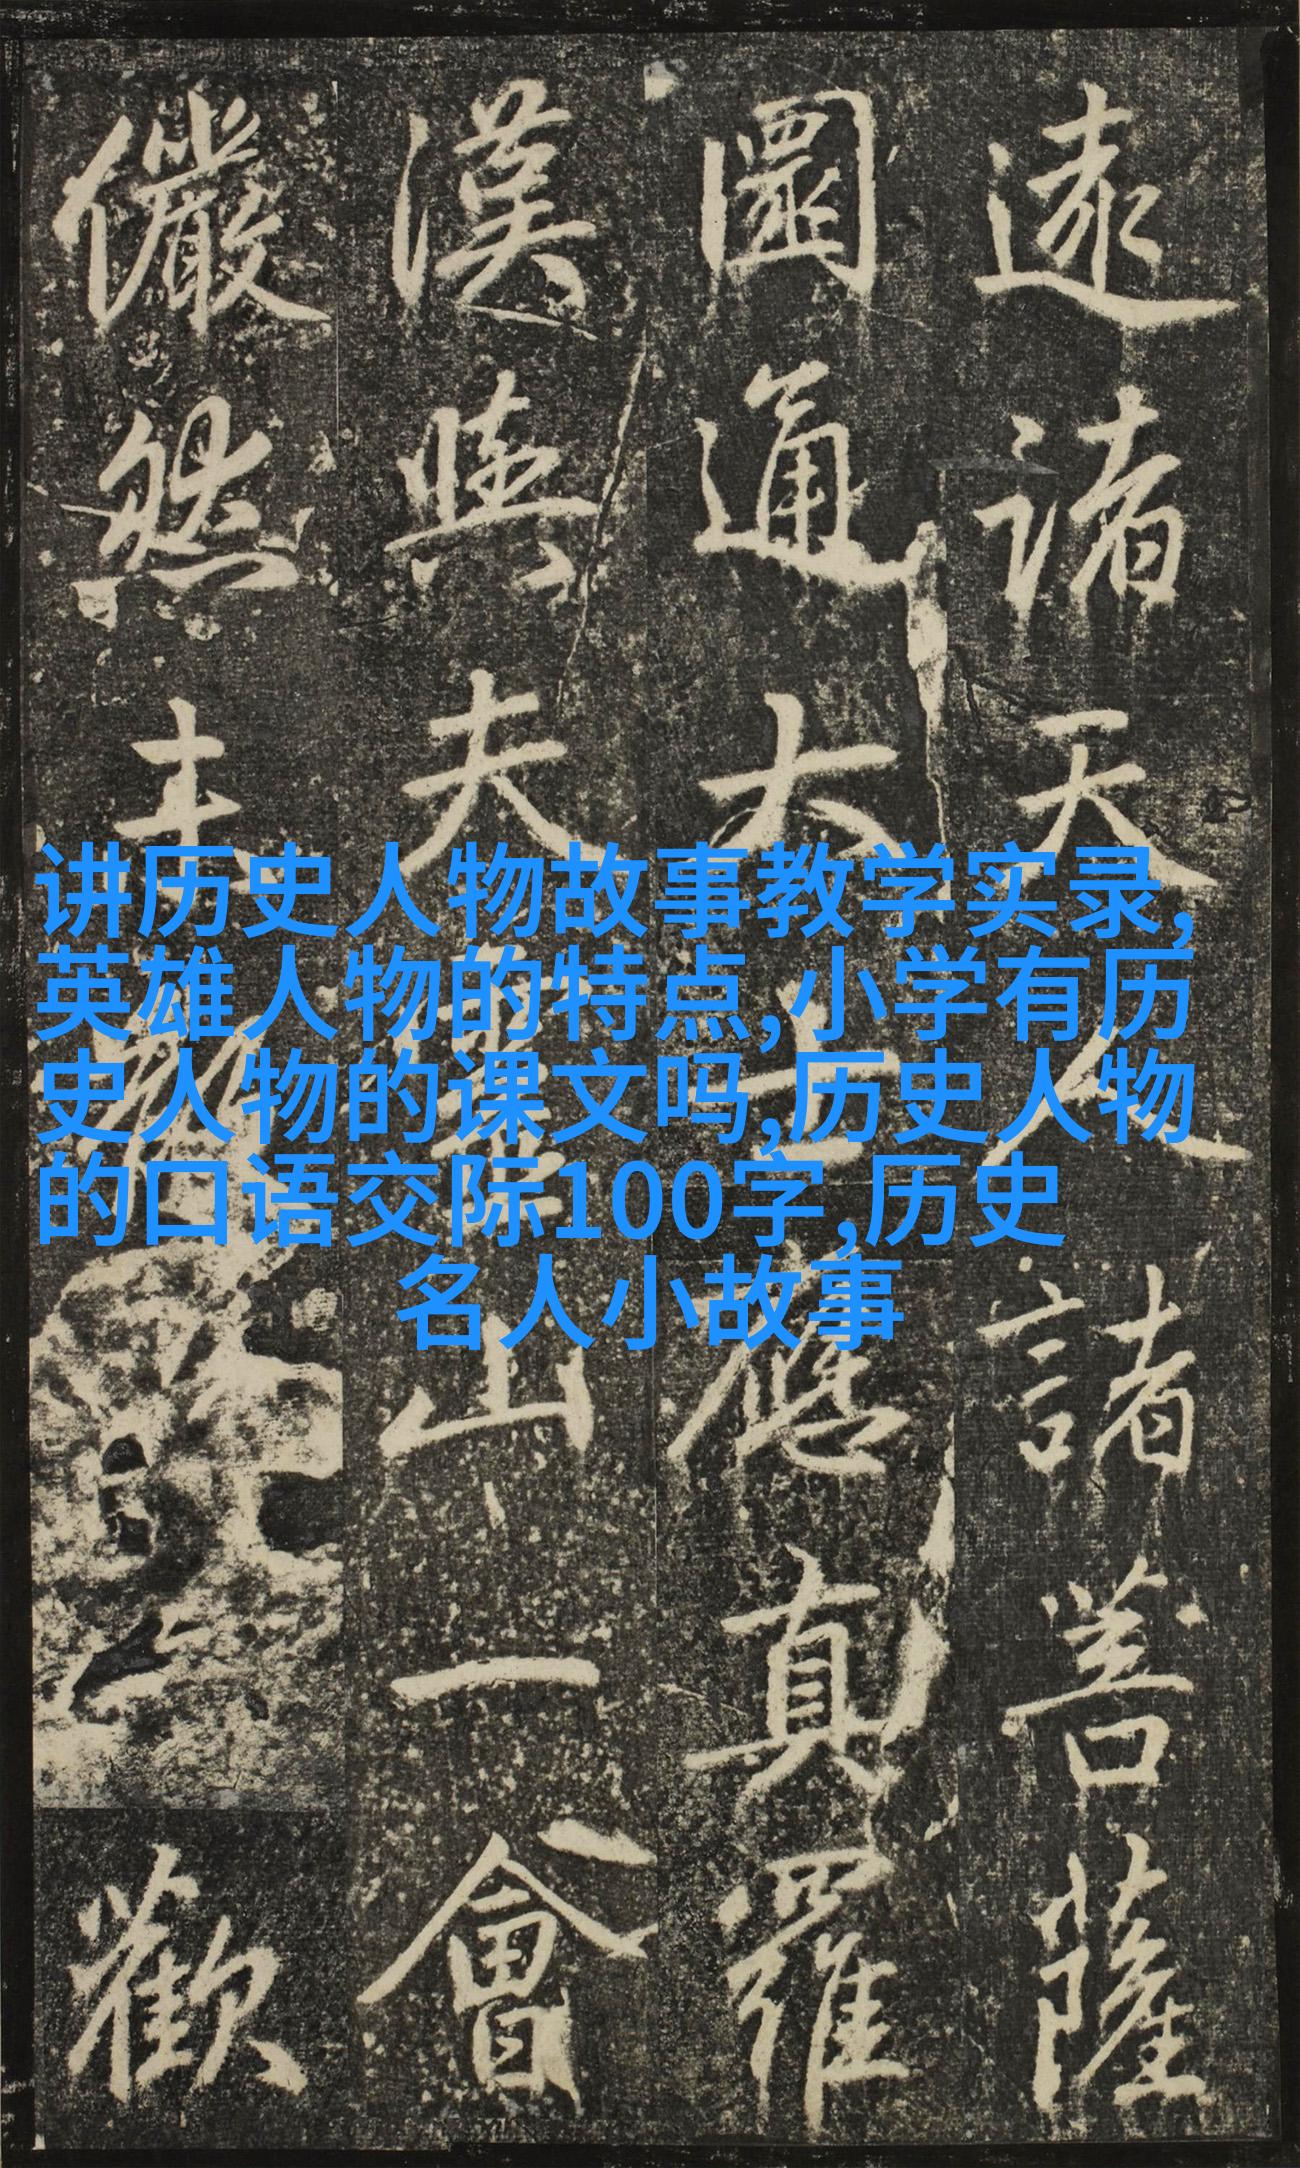 讲历史人物故事教学实录,
英雄人物的特点,小学有历
史人物的课文吗,历史人物
的口语交际100字,历史
名人小故事
遠諸天人諸菩薩
圓通大士應真羅
漢與夫靈山一會
儼然主歡